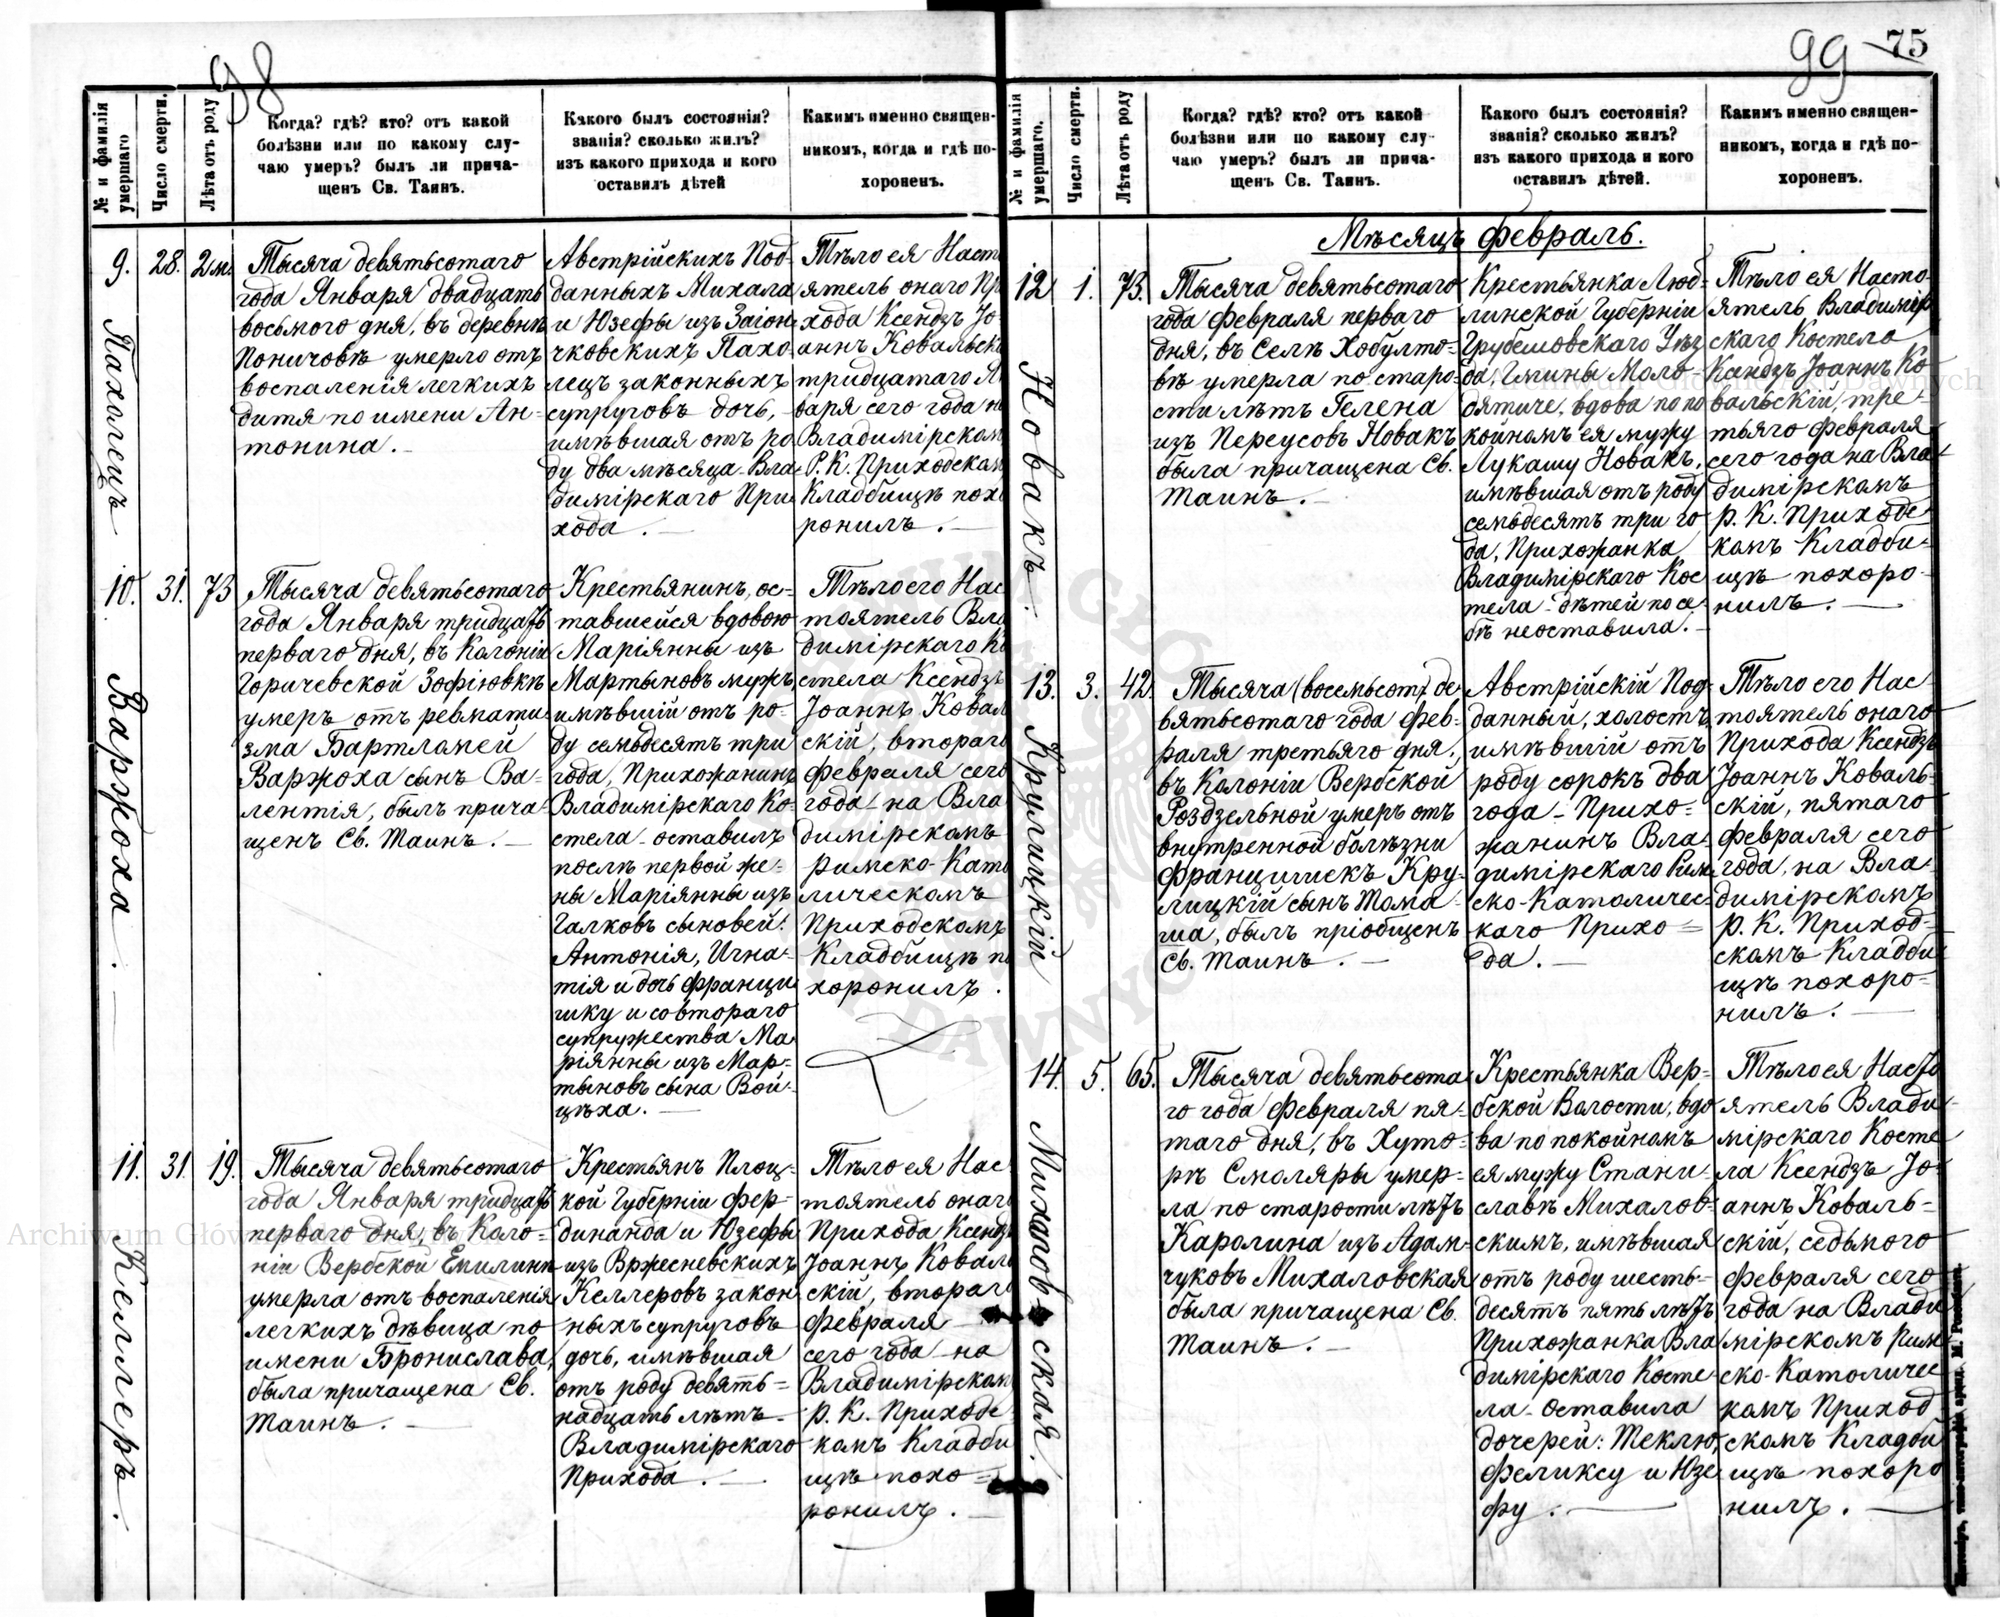 98
№ и фамилія умершаго
Число смерти.
Лѣта отъ роду
Когда? гдѣ? кто? отъ какой
болѣзни или по какому слу-
чаю умеръ? былъ ли прича-
щенъ Св. Таинъ.
Какого былъ состоянія?
званія? сколько жилъ?
изъ какого прихода и кого
оставилъ дѣтей
Какимъ именно священ-
никомъ, когда и гдѣ по-
хороненъ.
9.
Пахолецъ
28.
2 м.
Тысяча девятьсотаго
года Января двадцать
восьмого дня, въ деревнѣ
Поничовѣ умерло отъ
воспаленія легкихъ
дитя по имени Ан-
тонина.
Австрійскихъ Под-
данныхъ Михала
и Юзефы изъ Заіон-
чковскихъ Пахо-
лецъ законныхъ
супруговъ дочь,
имѣвшая отъ ро
ду два мѣсяца Вла-
димірскаго При
хода.
Тѣло ея Наст
ятель онаго Пр
хода Ксендзъ Іо-
аннъ Ковальск
тридцатаго Я
варя сего года н
Владимірском
Р. К. Приходском
Кладбищѣ похо
ронилъ.
10.
Варжоха.
31.
73
Тысяча девятьсотаго
года Января тридцать
перваго дня, въ Колоніи
Горичевской Зофіювкѣ
умеръ отъ ревмати-
зма Бартломей
Варжоха сынъ Ва-
лентія, былъ прича-
щенъ Св. Таинъ.
Крестьянинъ, ос-
тавшейся вдовою
Маріянны изъ
Мартыновъ мужъ,
имѣвшій отъ ро-
ду семьдесятъ три
года, Прихожанинъ
Владимірскаго Ко-
стела оставилъ
послѣ первой же-
ны Маріянны изъ
Галковъ сыновей:
Антонія, Игна-
тія и дочь Францы
шку и со втораго
супружества Ма
ріянны изъ Мар-
тыновъ сына Вой-
цѣха.
Тѣло его Нас
тоятель Вла
димірскаго Ко
стела Ксендзъ
Іоаннъ Ковал
скій, втораго
Февраля сего
года на Вла
димірскомъ
Римско-Като
лическомъ
Приходскомъ
Кладбищѣ по
хоронилъ.
11.
Келлеръ.
31.
19.
Тысяча девятьсотаго
года Января тридцать
перваго дня, въ Коло-
ніи Вербской Емилинѣ
умерла отъ воспаленія
легкихъ дѣвица по
имени Бронислава,
была причащена Св.
Таинъ.
Крестьянъ Плоц-
кой Губерніи Фер-
динанда и Юзефы
изъ Вржесневскихъ
Келлеровъ закон
ныхъ супруговъ
дочь, имѣвшая
отъ роду девять-
надцать лѣтъ
Владимірскаго
Прихода.
Тѣло ея Нас
тоятель онаго
Прихода Ксендзъ
Іоаннъ Коваль
скій, втораго
Февраля
сего года на
Владимірском
Р. К. Приходс
комъ Кладби
щѣ похо-
ронилъ.
99 75
№ и фамилія умершаго.
Число смерти.
Лѣта отъ роду
Когда? гдѣ? кто? отъ какой
болѣзни или по какому слу-
чаю умеръ? былъ ли прича-
щенъ Св. Таинъ.
Какого былъ состоянія?
званія? сколько жилъ?
изъ какого прихода и кого
оставилъ дѣтей.
Какимъ именно священ-
никомъ, когда и гдѣ по-
хороненъ.
Мѣсяцъ Февраль.
12
Новакъ.
1.
73.
Тысяча девятьсотаго
года Февраля перваго
дня, въ Селѣ Хобулто-
вѣ умерла по старо-
сти лѣтъ Гелена
изъ Переусовъ Новакъ
была причащена Св.
Таинъ.
Крестьянка Люб-
линской Губерніи
Грубешовскаго Уѣз
да, Гмины Моло-
дятиче, вдова по по
койномъ ея мужу
Лукашу Новакъ,
имѣвшая отъ роду
семьдесятъ три го
да, Прихожанка
Владимірскаго Кос
тела дѣтей по се-
бѣ неоставила.
Тѣло ея Насто-
ятель Владимір
скаго Костела
Ксендзъ Іоаннъ Ко
вальскій, тре-
тьяго Февраля
сего года на Вла
димірскомъ
Р. К. Приходс
комъ Кладби-
щѣ похоро-
нилъ.
13.
Круглицкій
3.
42.
Тысяча (восемьсот) де
вятьсотаго года Фев-
раля третьяго дня,
въ Колоніи Вербской
Роздзельной умеръ отъ
внутренной болѣзни
Францишекъ Кру-
лицкій сынъ Тома-
ша, былъ пріобщенъ
Св. Таинъ.
Австрійскій Под-
данный, холостъ,
имѣвшій отъ
роду сорокъ два
года Прихо-
жанинъ Вла-
димірскаго Рим
ско-Католичес
каго Прихо-
да.
Тѣло его Нас
тоятель онаго
Прихода Ксендзъ
Іоаннъ Коваль-
скій, пятаго
Февраля сего
года, на Вла-
димірскомъ
Р. К. Приход-
скомъ Кладби
щѣ похоро-
нилъ.
14.
Михаловская.
5.
65.
Тысяча девятьсота
го года Февраля пя-
таго дня, въ Хуто-
рѣ Смоляры умер-
ла по старости лѣтъ
Каролина изъ Адам-
чуковъ Михаловская
была причащена Св.
Таинъ.
Крестьянка Вер-
бской Волости, вдо
ва по покойномъ
ея мужу Стани-
славѣ Михалов-
скимъ, имѣвшая
отъ роду шесть-
десятъ пять лѣтъ
Прихожанка Вла
димірскаго Косте-
ла Оставила
дочерей: Теклю,
Феликсу и Юзе
фу.
Тѣло ея Насто
ятель Влади-
мірскаго Косте
ла Ксендзъ Іо-
аннъ Коваль-
скій, седьмого
Февраля сего
года на Влади
мірскомъ Рим
ско-Католичес
комъ Приход
скомъ Кладби
щѣ похоро
нилъ.
Archiwum Główne Akt Dawnych